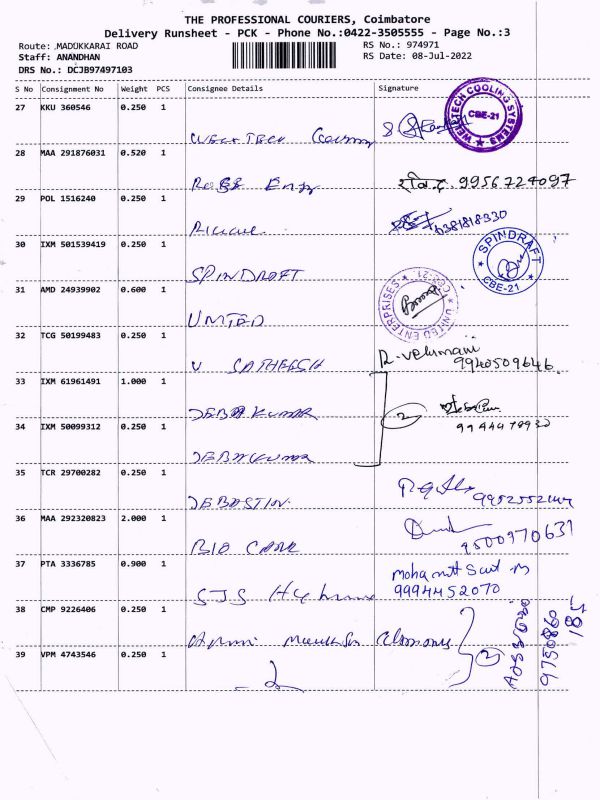 THE PROFESSIONAL COURIERS, Coimbatore
Delivery Runsheet - PCK - Phone No.:0422-3505555 - Page No.:3
Route: MADUKKARAI ROAD RS No.: 974971
Staff: ANANDHAN RS Date: 08-Jul-2022
DRS No.: DCJB97497103
S No Consignment No Weight PCS Consignee Details Signature
27 KKU 360546 0.250 1
WELLTECH COOLING SYSTEMS CBE-21
28 MAA 291876031 0.520 1
9956724097
29 POL 1516240 0.250 1
30 IXM 501539419 0.250 1
SPINDRAFT
SPINDRAFT CBE-21
31 AMD 24939902 0.600 1
UNITED
UNITED ENTERPRISES CBE-21
32 TCG 50199483 0.250 1
V SATHEESH R. Velumani
9940509646
33 IXM 61961491 1.000 1
DEBA KUMAR 2
34 IXM 50099312 0.250 1
DEBA KUMAR
35 TCR 29700282 0.250 1
36 MAA 292320823 2.000 1
BIO CARE 9500970631
37 PTA 3336785 0.900 1
SJS Mohanatt Sait M
9994452070
38 CMP 9226406 0.250 1
2
39 VPM 4743546 0.250 1
9750860
185